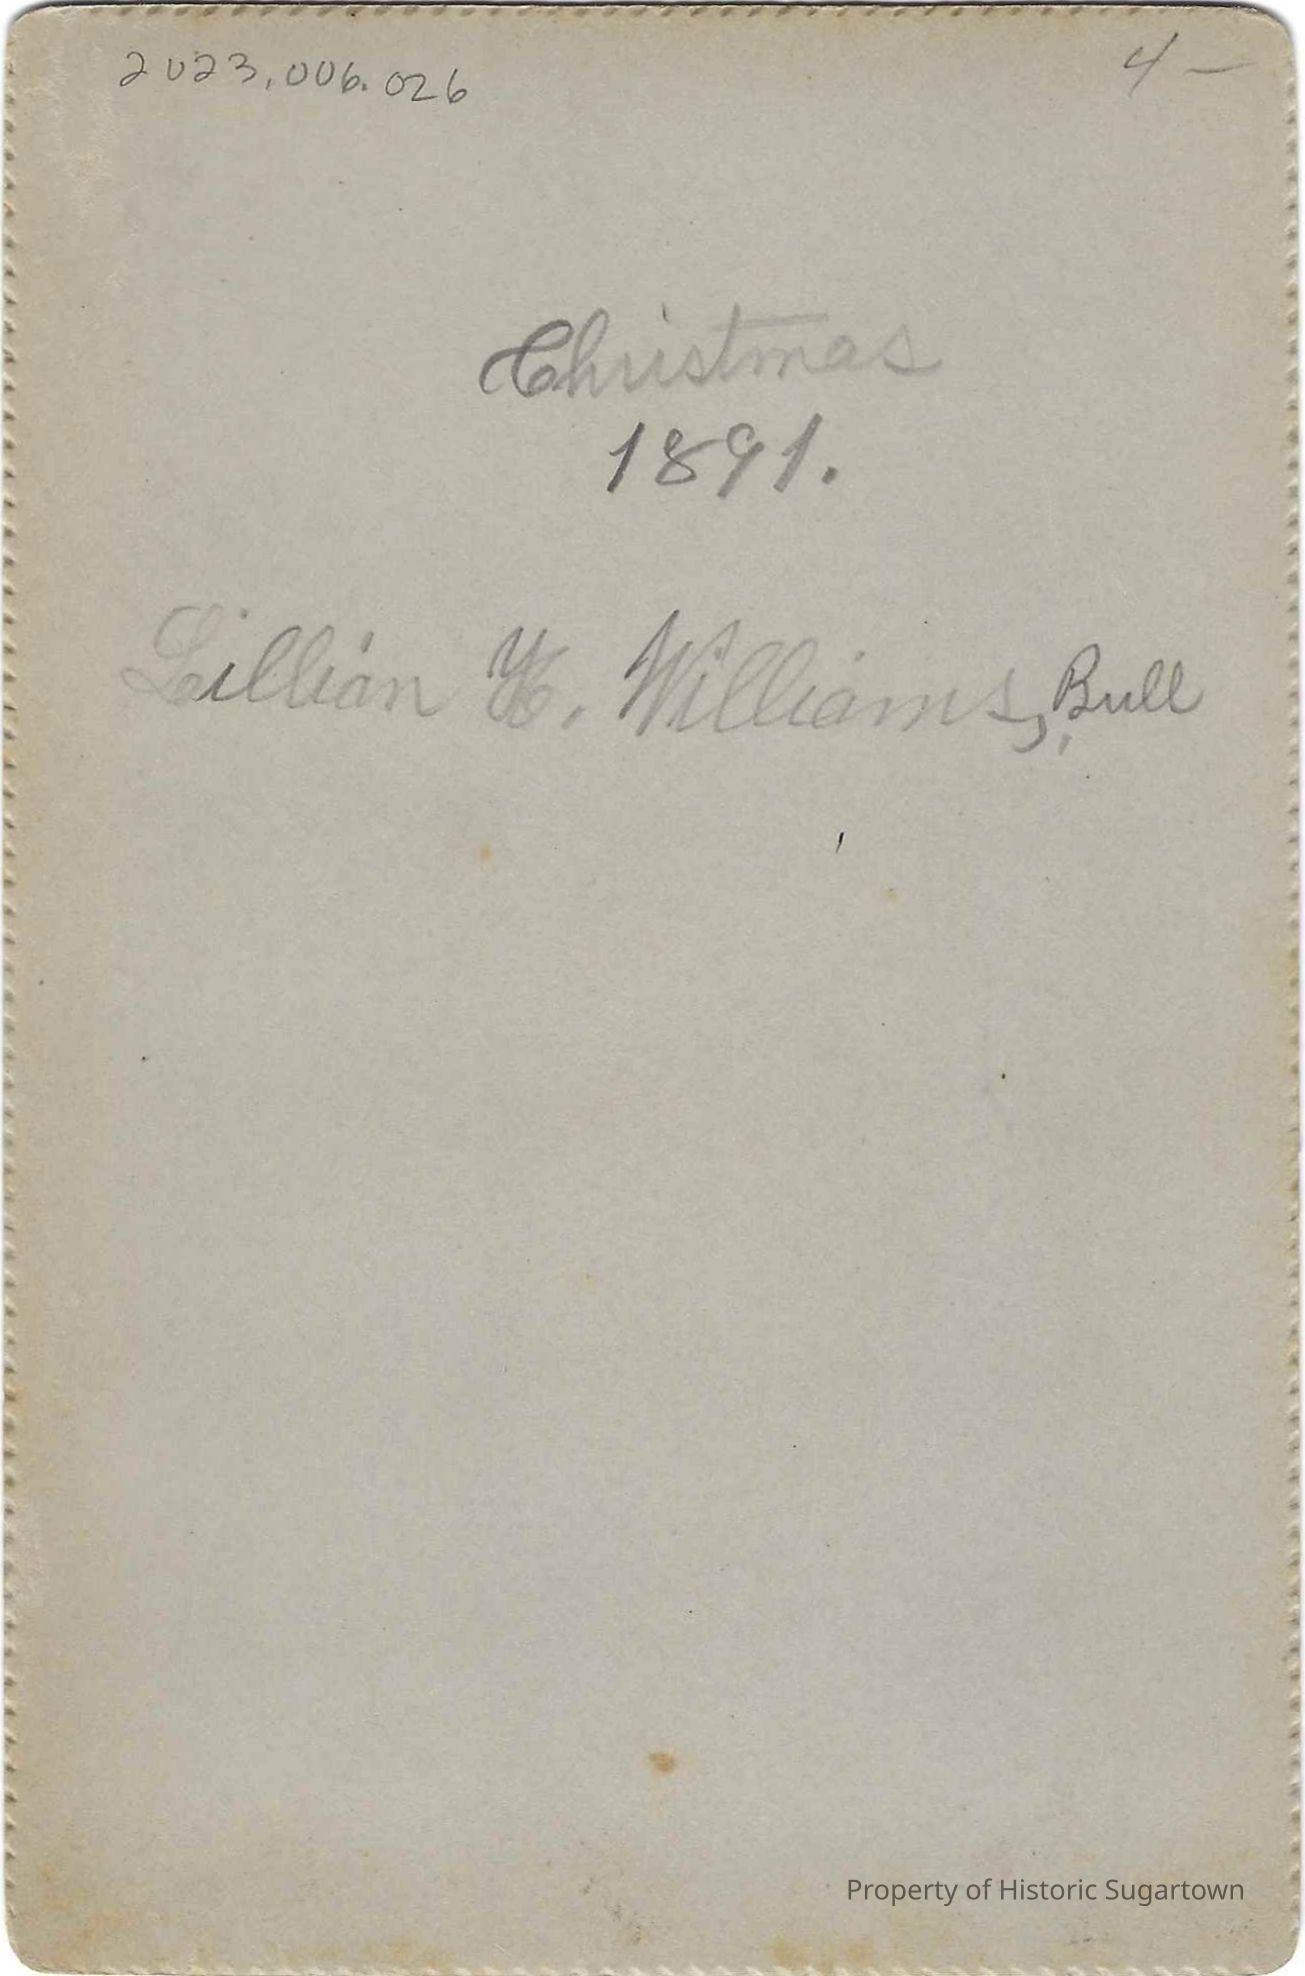 2023.006.026
4 —
Christmas
1891.
Lillian H. Williams, Bull
Property of Historic Sugartown